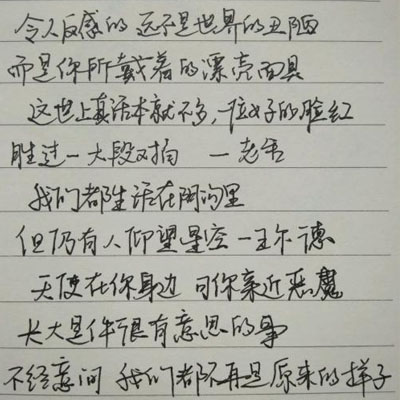 令人反感的 远不是世界的丑陋
而是你所戴着的漂亮面具
这世上真话本就不多，一位女子的脸红
胜过一大段对白 一老舍
我们都生活在阴沟里
但仍有人仰望星空 一王尔德
天使在你身边 可你亲近恶魔
长大是件很有意思的事
不经意间 我们都不再是原来的样子